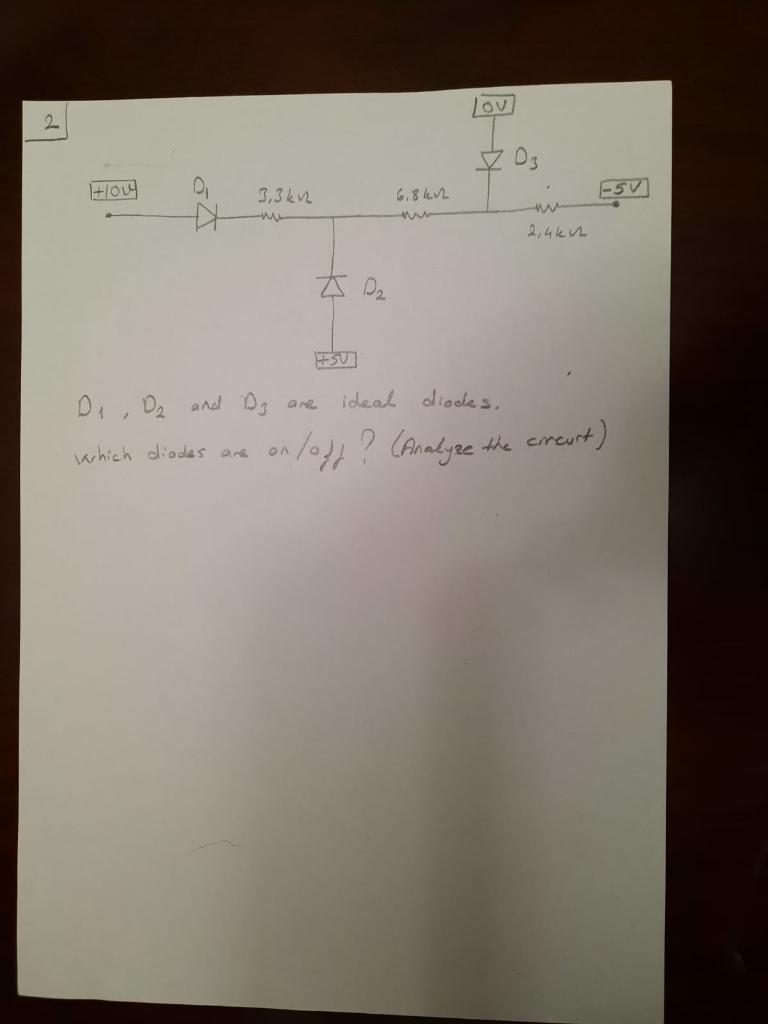 2
10V
D3
+10V
D1
3,3kΩ
6,8kΩ
-5V
2,4kΩ
D2
+5V
D1, D2 and D3 are ideal diodes.
which diodes are on/off? (Analyze the circuit)